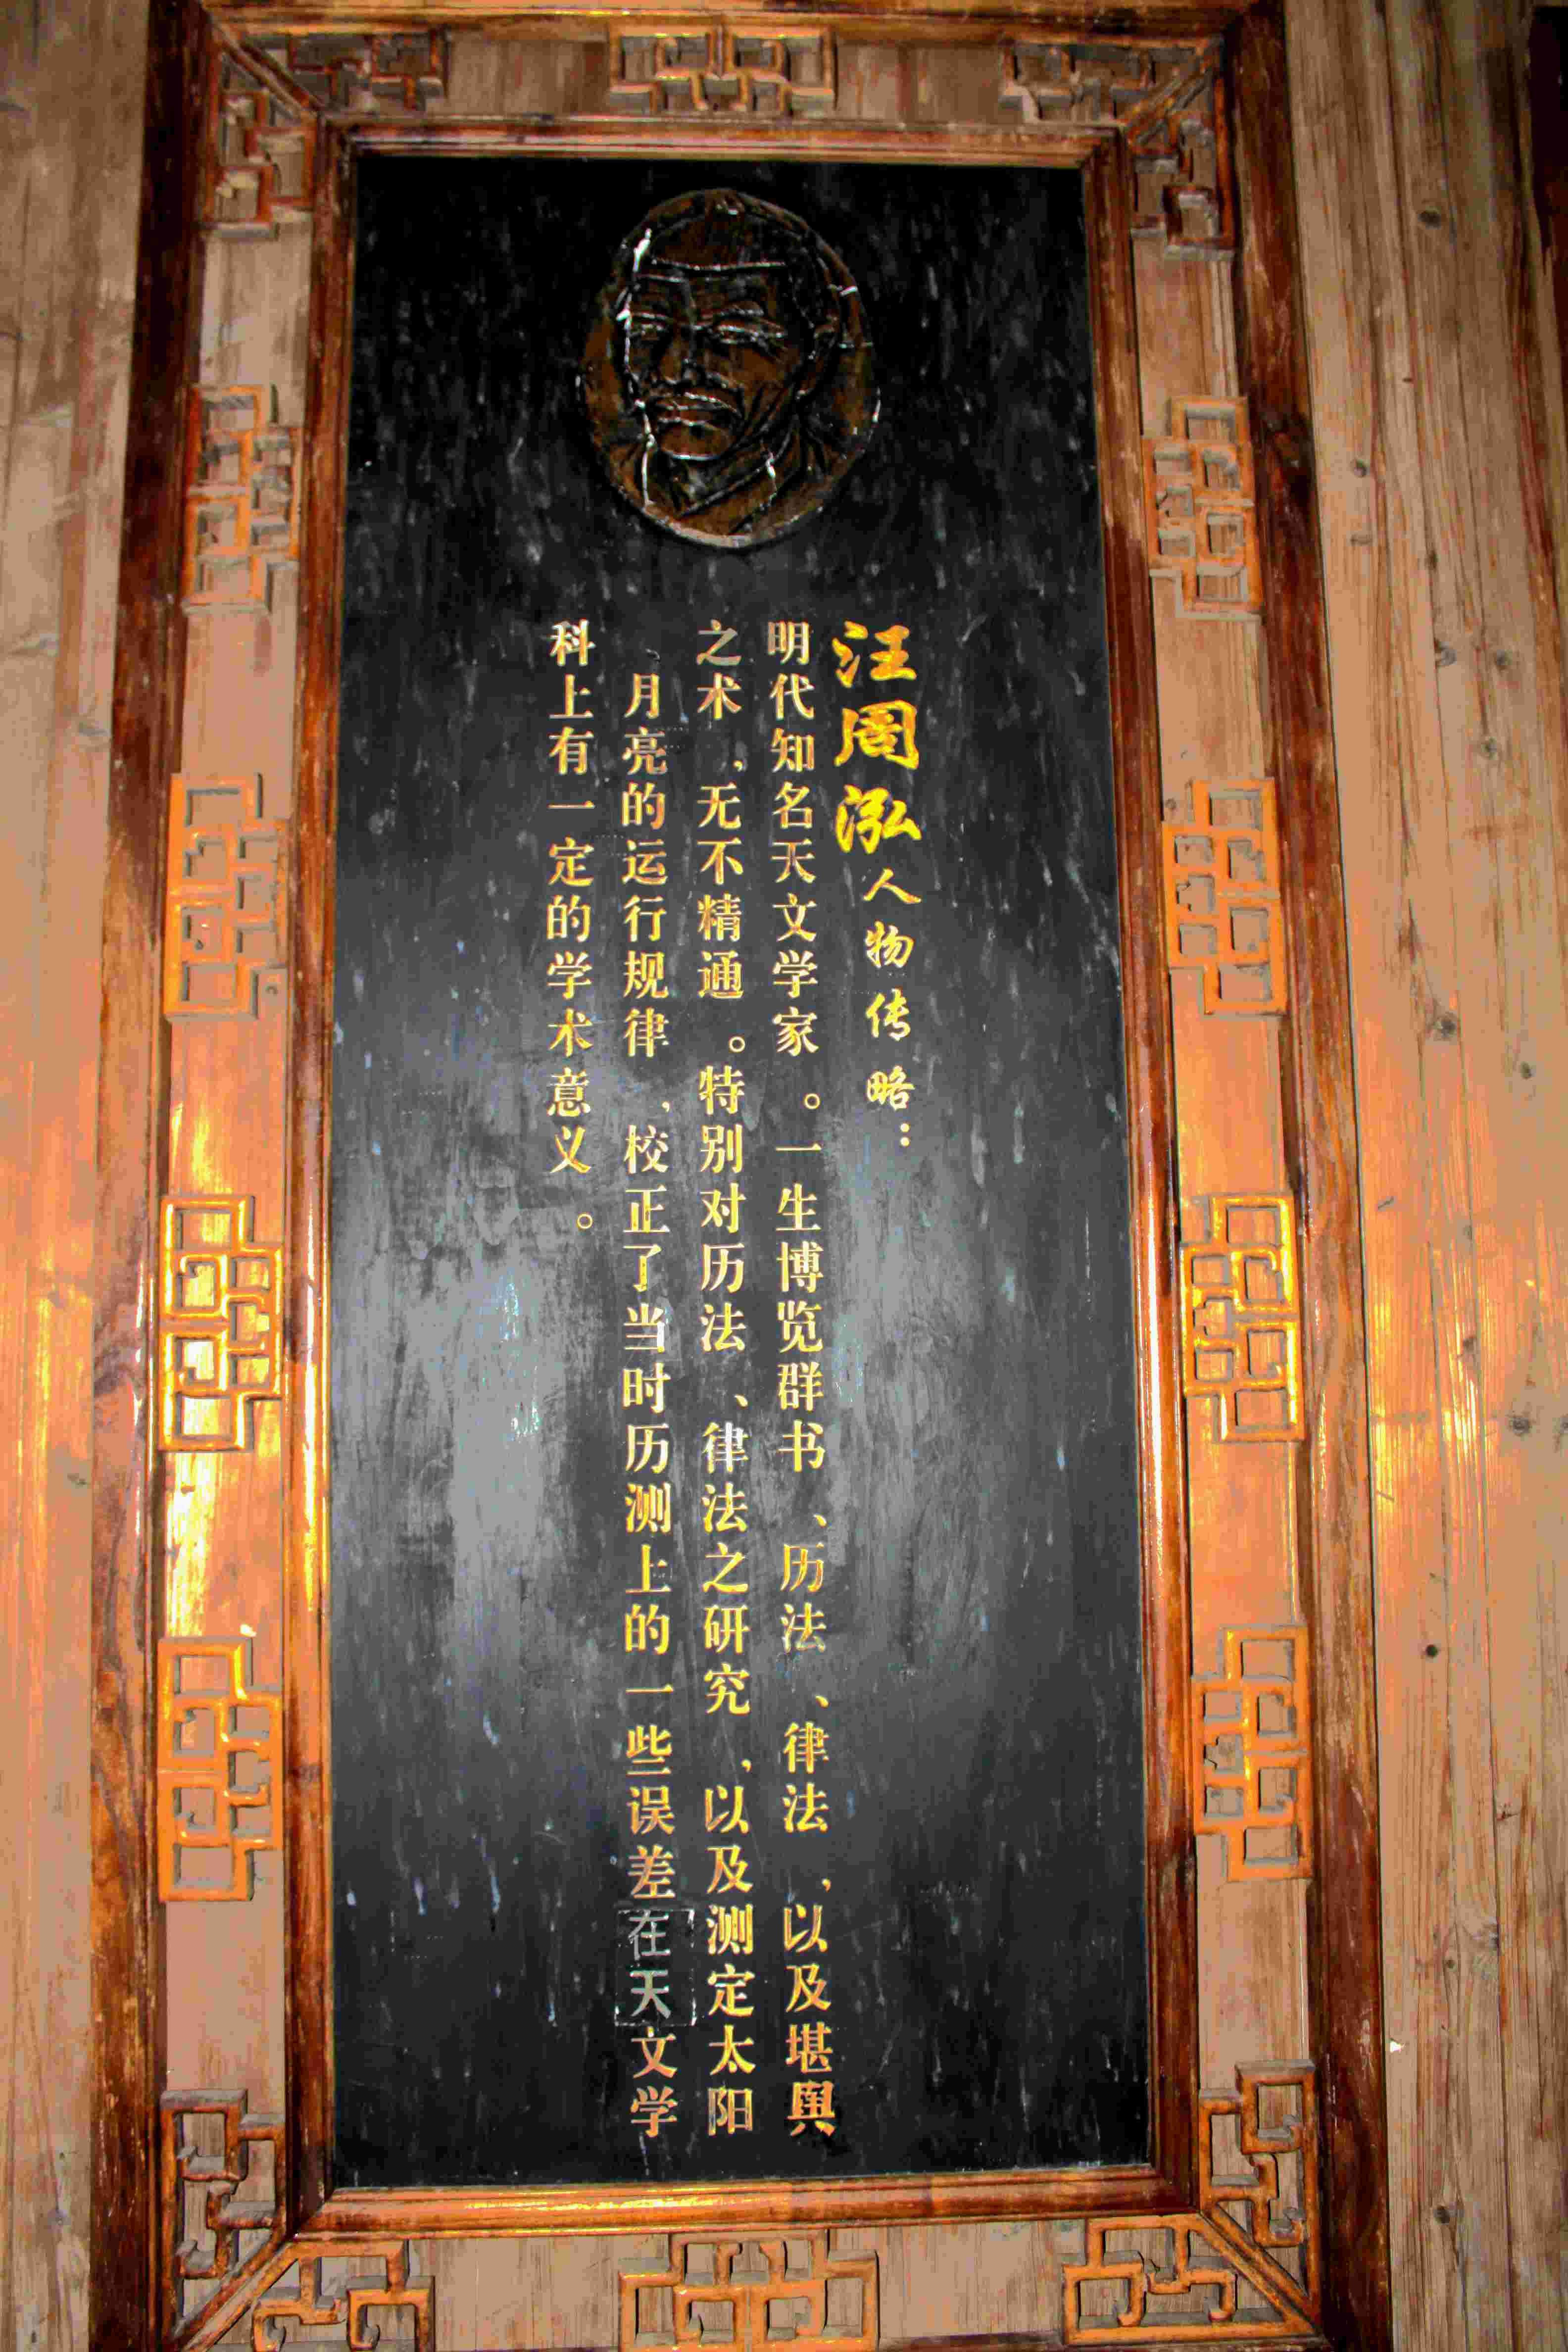 汪周泓人物传略：
明代知名天文学家。一生博览群书、历法、律法，以及堪舆
之术，无不精通。特别对历法、律法之研究，以及测定太阳
、月亮的运行规律，校正了当时历测上的一些误差在天文学
科上有一定的学术意义。